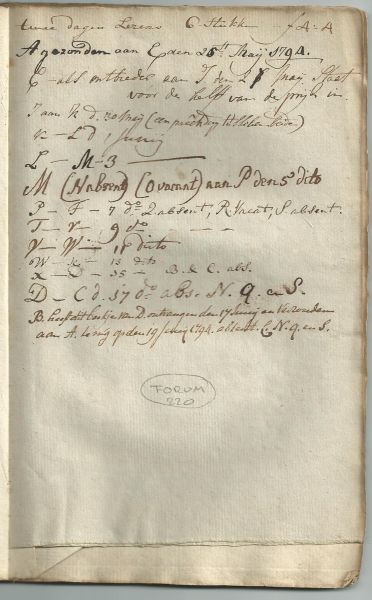 twee dagen Lezens 6 Stukk — f 4:4
A gezonden aan E den 26st Maij 1794.
E — als ontbieder aan I den 28 Maij
voor de helft van de prijs in.
I aan K d. 30 Maij
K — L d 1 Junij
L — M — 3
M (N absent) (O vacant) aan P den 5 dito
P — T — 7 do Q absent, R Vacat, S absent.
T — V — 9 do — —
V — W — 11 dito
W — X — 13 dito
X — D — 15 — B. & C. abs.
D — C d. 17 do abs. N. Q. en S.
B. heeft dit boekje van D. ontvangen den 17 Junij en verzonden
aan A. terug op den 19 Junij 1794. absent C. N. Q. en S.
FORUM
220